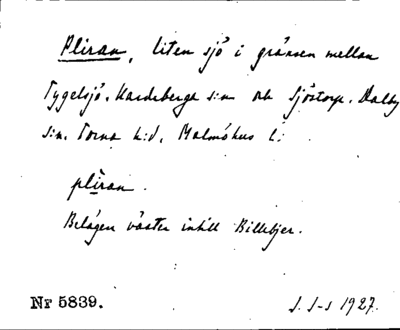 Pliran, liten sjö i gränsen mellan
Tygelsjö, Hardeberga s:n och Sjöstorp, Dalby
s:n, Torna h:d, Malmöhus l:
pliran.
Belägen väster intill Billebjer.
Nr 5839.
J. S-s 1927.